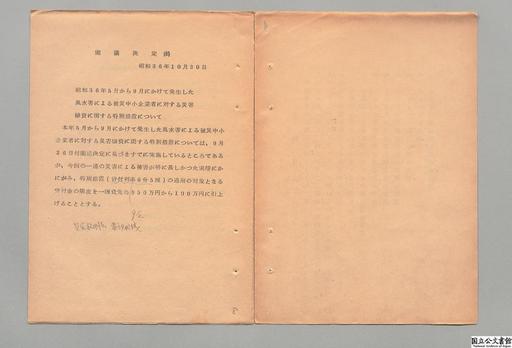 閣議決定案
昭和36年10月30日
昭和36年5月から9月にかけて発生した
風水害による被災中小企業者に対する災害
融資に関する特別措置について
本年5月から9月にかけて発生した風水害による被災中小
企業者に対する災害融資に関する特別措置については、9月
26日付閣議決定に基づきすでに実施しているところである
が、今回の一連の災害による被害が特に甚しかつた実情にか
んがみ、特別措置（貸付利率6分5厘）の適用の対象となる
貸付金の限度を一被貸先の50万円から100万円に引上
げることとする。
国立公文書館
National Archives of Japan